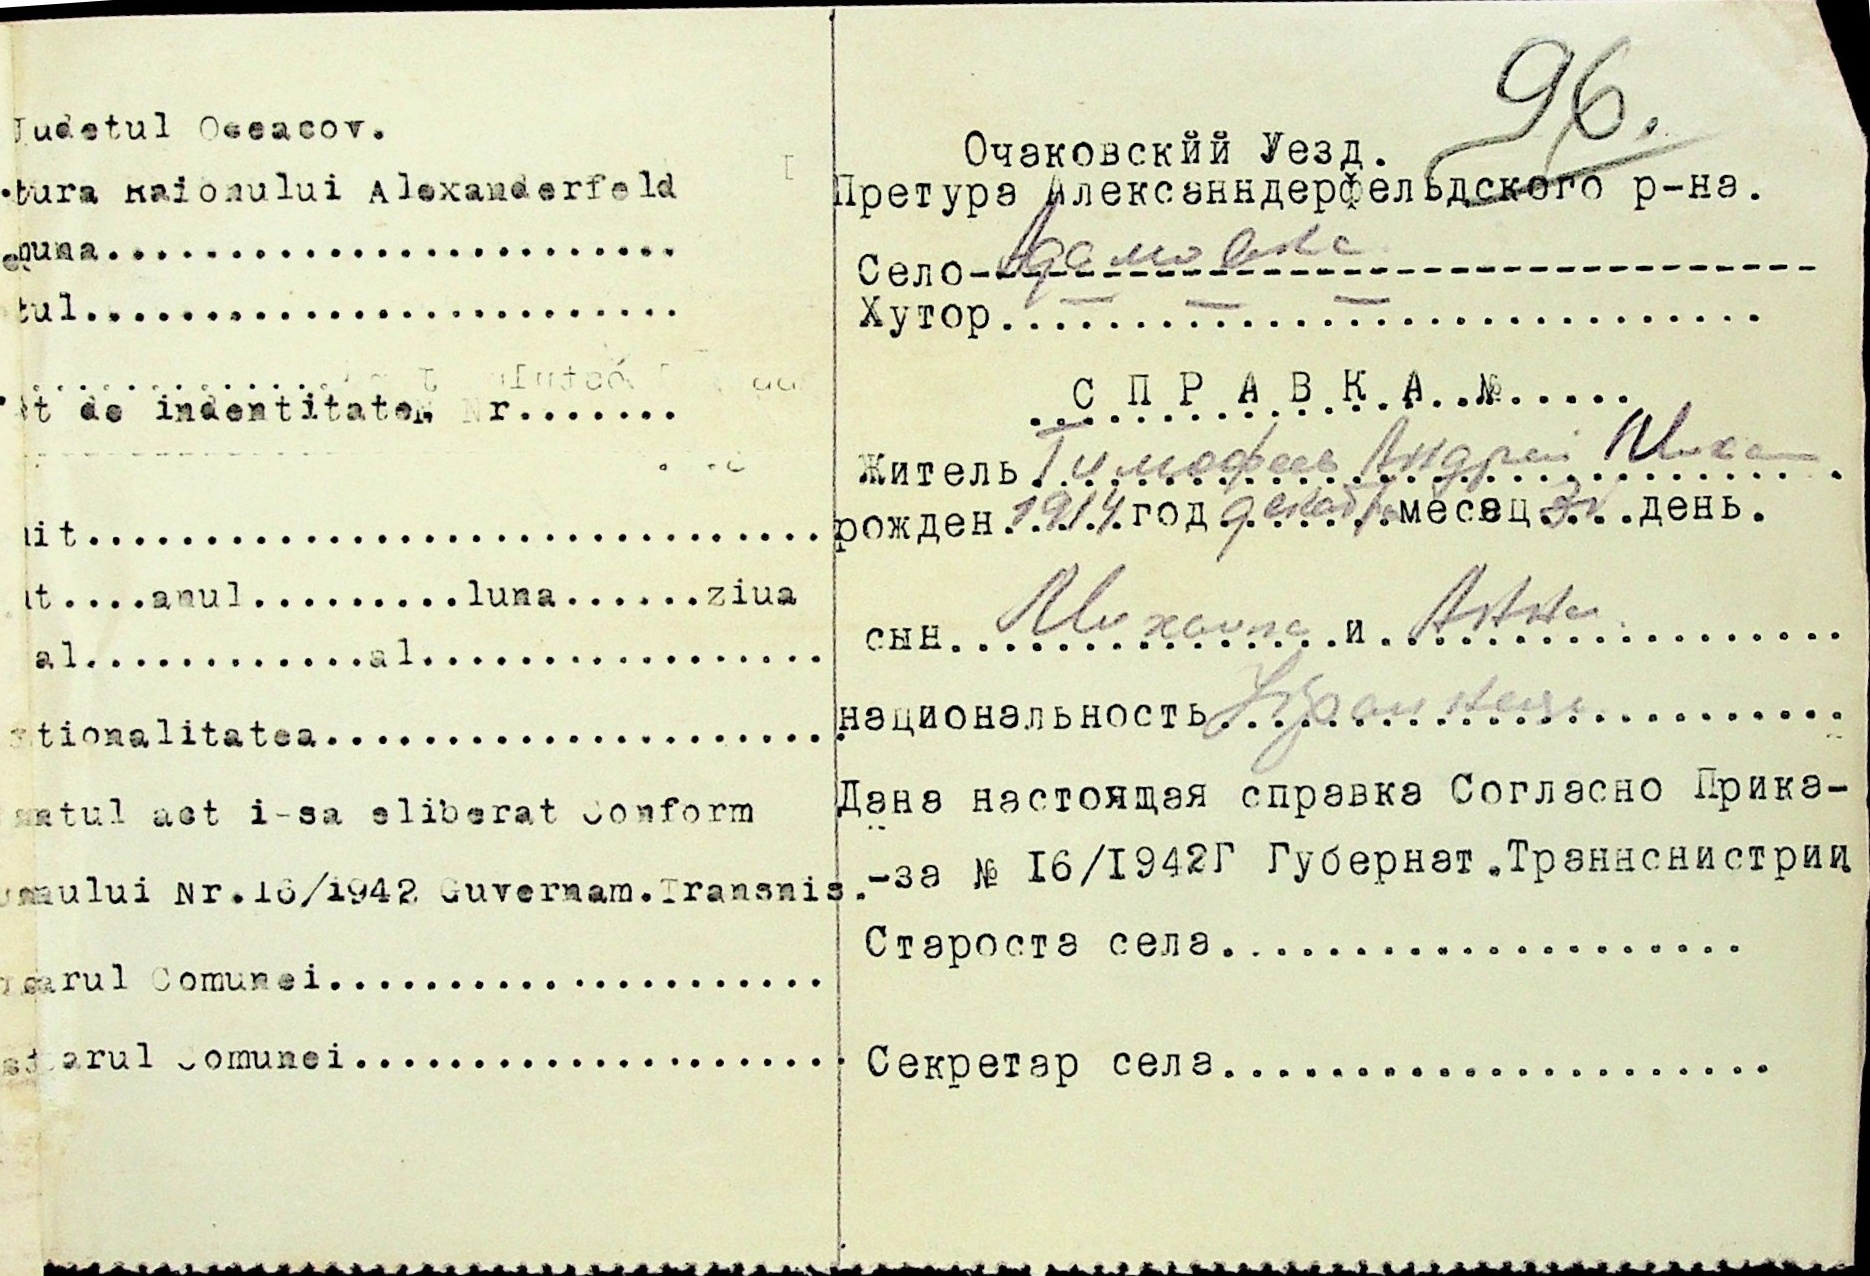 Judetul Oceacov.
tura Raionului Alexanderfeld
muna..............................
tul..............................
t de indentitate Nr.......
it..............................
t....anul.........luna......ziua
al.............al.................
tionalitatea......................
natul act i-sa eliberat Conform
nului Nr.16/1942 Guvernam.Transnis.
arul Comunei......................
arul Comunei......................
96.
Очаковскйй Уезд.
Претура Алексанндерфельдского р-на.
Село- Адамовка
Хутор.... — — —
С П Р А В К А №.....
Житель Тимофеев Андрей Миха
рожден 1914 год декабрь месяц день.
сын Михаила и Анны
национальность Украинец
Дана настоящая справка Согласно Прика-
-за № I6/I942Г Губернат.Траннснистрии
Староста села....................
Секретар села.....................